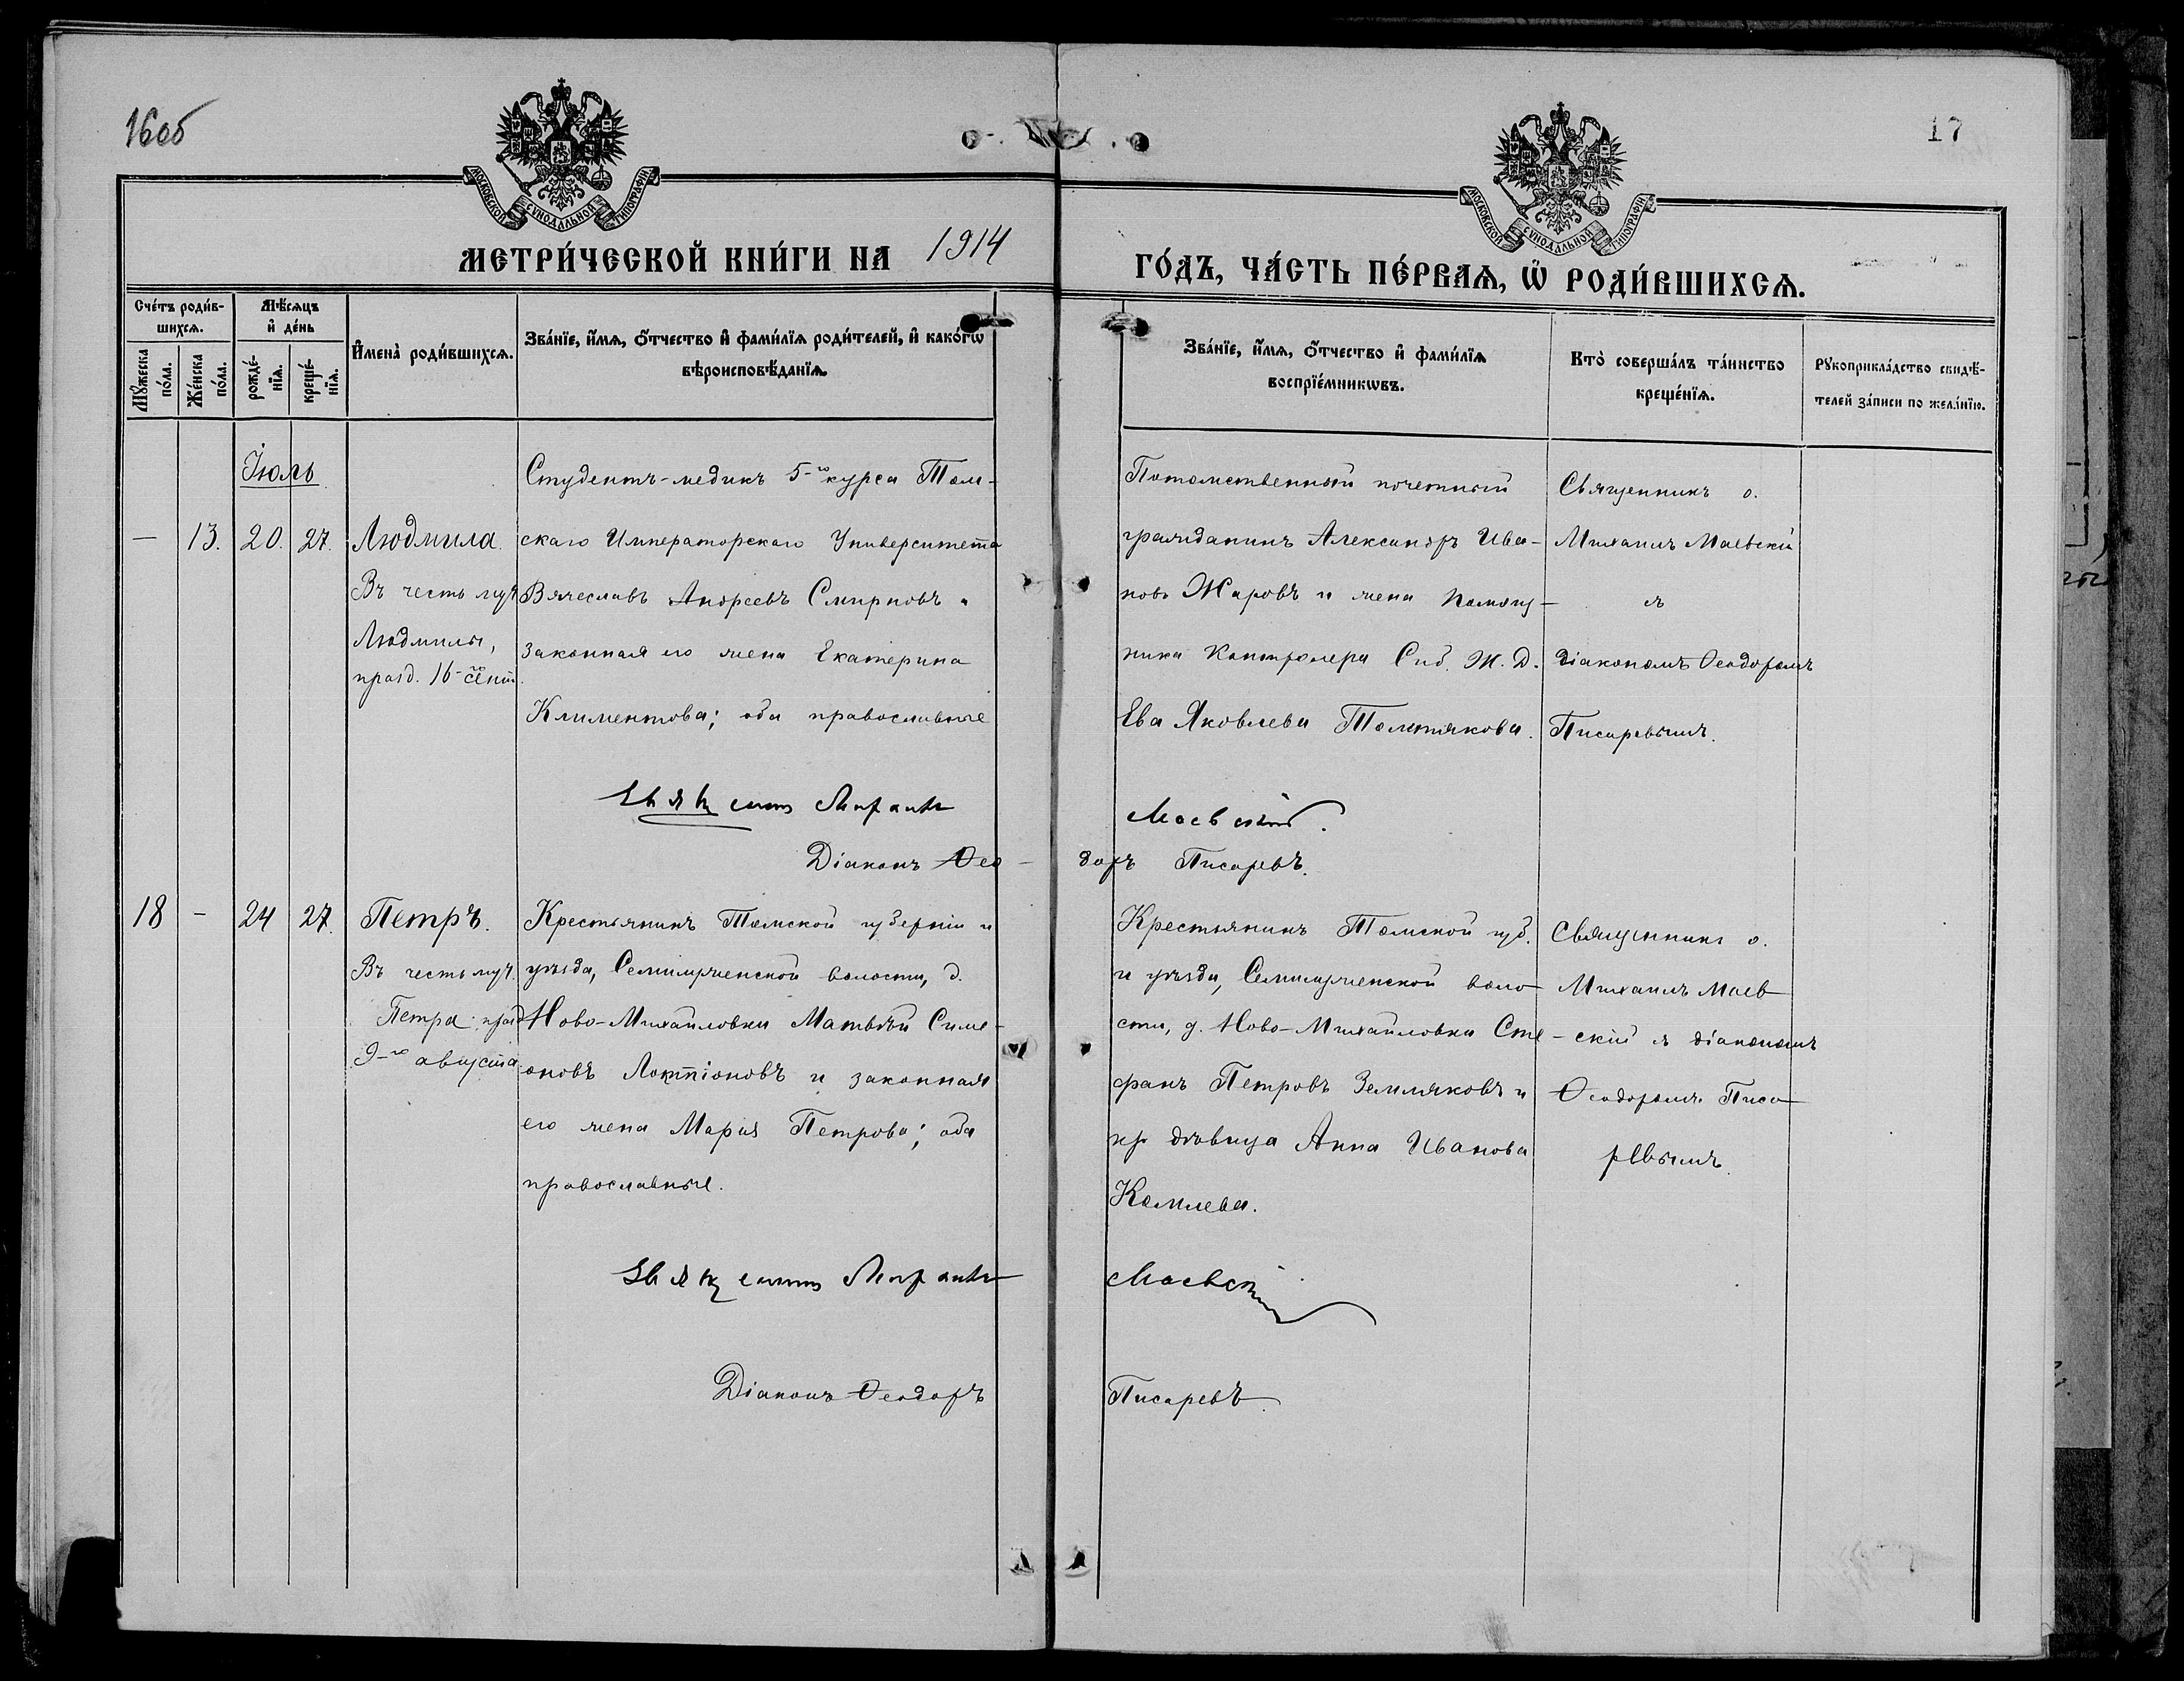 16об
17
МОСКОВСКОЙ СѴНОДАЛЬНОЙ ТИПОГРАФІИ
МОСКОВСКОЙ СѴНОДАЛЬНОЙ ТИПОГРАФІИ
МЕТРИ́ЧЕСКОЙ КНИ́ГИ НА 1914
ГО́ДЪ, ЧА́СТЬ ПЕ́РВАѦ, Ѡ҆ РОДИ́ВШИХСѦ.
Сче́тъ роди́в-
шихсѧ.
Мꙋ́жеска по́ла.
Же́нска по́ла.
Мѣ́сѧцъ
и҆ де́нь
рожде́-
нїѧ.
креще́-
нїѧ.
И҆мена̀ роди́вшихсѧ.
Зва́нїе, и҆́мѧ, ѻ҆́тчество и҆ фами́лїѧ роди́телей, и҆ како́гѡ
вѣроисповѣ́данїѧ.
Зва́нїе, и҆́мѧ, ѻ҆́тчество и҆ фами́лїѧ
воспрїе́мникѡвъ.
Кто̀ соверша́лъ та́инство
креще́нїѧ.
Рꙋкоприкла́дство свидѣ́-
телей за́писи по жела́нїю.
Іюль
— 13. 20. 27.
Людмила.
Въ честь муч.
Людмилы,
празд. 16-го сент.
Студентъ-медикъ 5-го курса Том-
скаго Императорскаго Университета
Вячеславъ Андреевъ Смирновъ и
законная его жена Екатерина
Климентова; оба православные
Потомственный почетный
гражданинъ Александръ Ива-
новъ Жаровъ и жена помощ-
ника контролера Сиб. Ж. Д.
Ева Яковлева Толстякова.
Священникъ о.
Михаилъ Маевскій
съ
діакономъ Ѳеодоромъ
Писаревымъ.
Священникъ Михаилъ Маевскій.
Діаконъ Ѳео-доръ Писаревъ.
18 - 24 27.
Петръ.
Въ честь муч.
Петра празд.
9-го августа
Крестьянинъ Томской губерніи и
уѣзда, Семилуженской волости, д.
Ново-Михайловки Матвѣй Симе-
оновъ Локтіоновъ и законная
его жена Марія Петрова; оба
православные.
Крестьянинъ Томской губ.
и уѣзда, Семилуженской воло-
сти, д. Ново-Михайловки Сте-
фанъ Петровъ Земляковъ и
кр. дѣвица Анна Иванова
Комлева.
Священникъ о.
Михаилъ Маев-
скій съ діакономъ
Ѳеодоромъ Писа-
ревымъ.
Священникъ Михаилъ Маевскій
Діаконъ Ѳеодоръ Писаревъ.